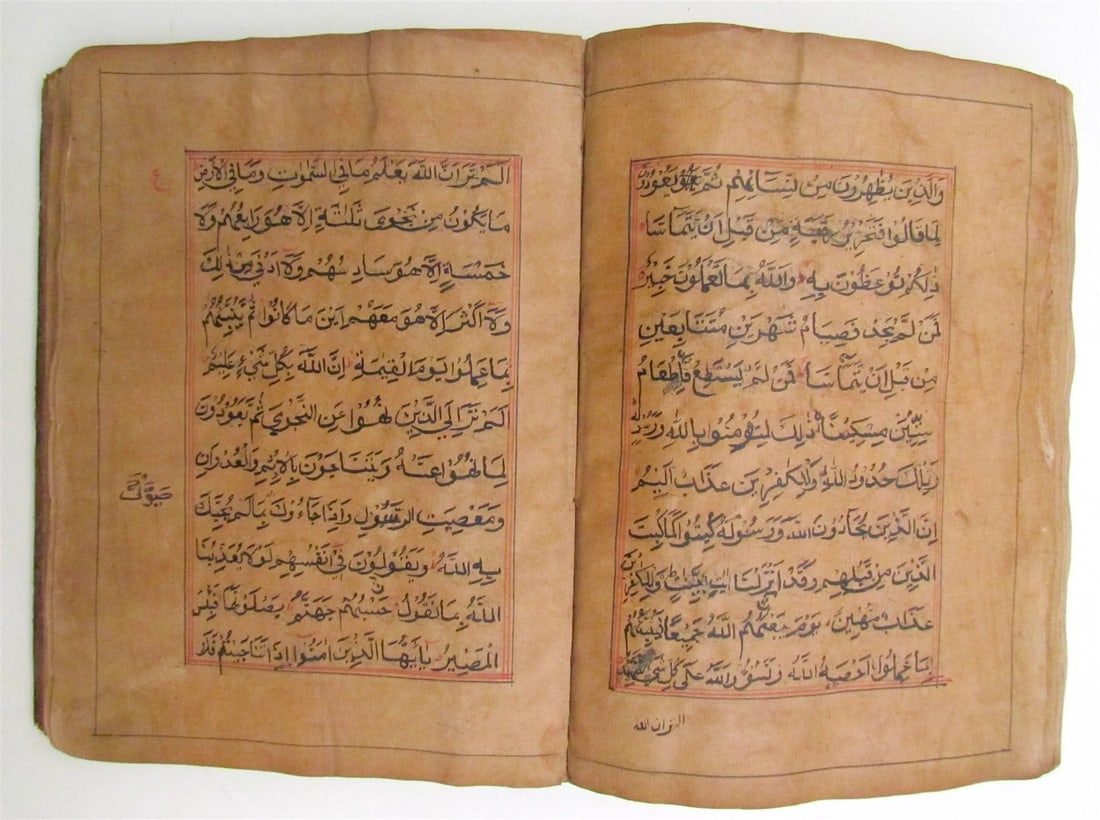 والذين يظهرون من نسائهم ثم يعودون
لما قالوا فتحرير رقبة من قبل ان يتماسا
ذلكم توعظون به والله بما تعملون خبير
فمن لم يجد فصيام شهرين متتابعين
من قبل ان يتماسا فمن لم يستطع فاطعام
ستين مسكينا ذلك لتؤمنوا بالله ورسوله
وتلك حدود الله وللكفرين عذاب اليم
ان الذين يحادون الله ورسوله كبتوا كما كبت
الذين من قبلهم وقد انزلنا ايت بينت وللكفرين
عذاب مهين يوم يبعثهم الله جميعا فينبئهم
بما عملوا احصه الله ونسوه والله على كل شيء شهيد
الم تر ان الله
الم تر ان الله يعلم ما في السموت وما في الارض
ما يكون من نجوى ثلثة الا هو رابعهم ولا
خمسة الا هو سادسهم ولا ادنى من ذلك
ولا اكثر الا هو معهم اين ما كانوا ثم ينبئهم
بما عملوا يوم القيمة ان الله بكل شيء عليم
الم تر الى الذين نهوا عن النجوى ثم يعودون
لما نهوا عنه ويتناجون بالاثم والعدوان
ومعصيت الرسول واذا جاءوك بما لم يحيك
به الله ويقولون في انفسهم لولا يعذبنا
الله بما نقول حسبهم جهنم يصلونها فبئس
المصير يايها الذين امنوا اذا تناجيتم فلا
حيوك
ع